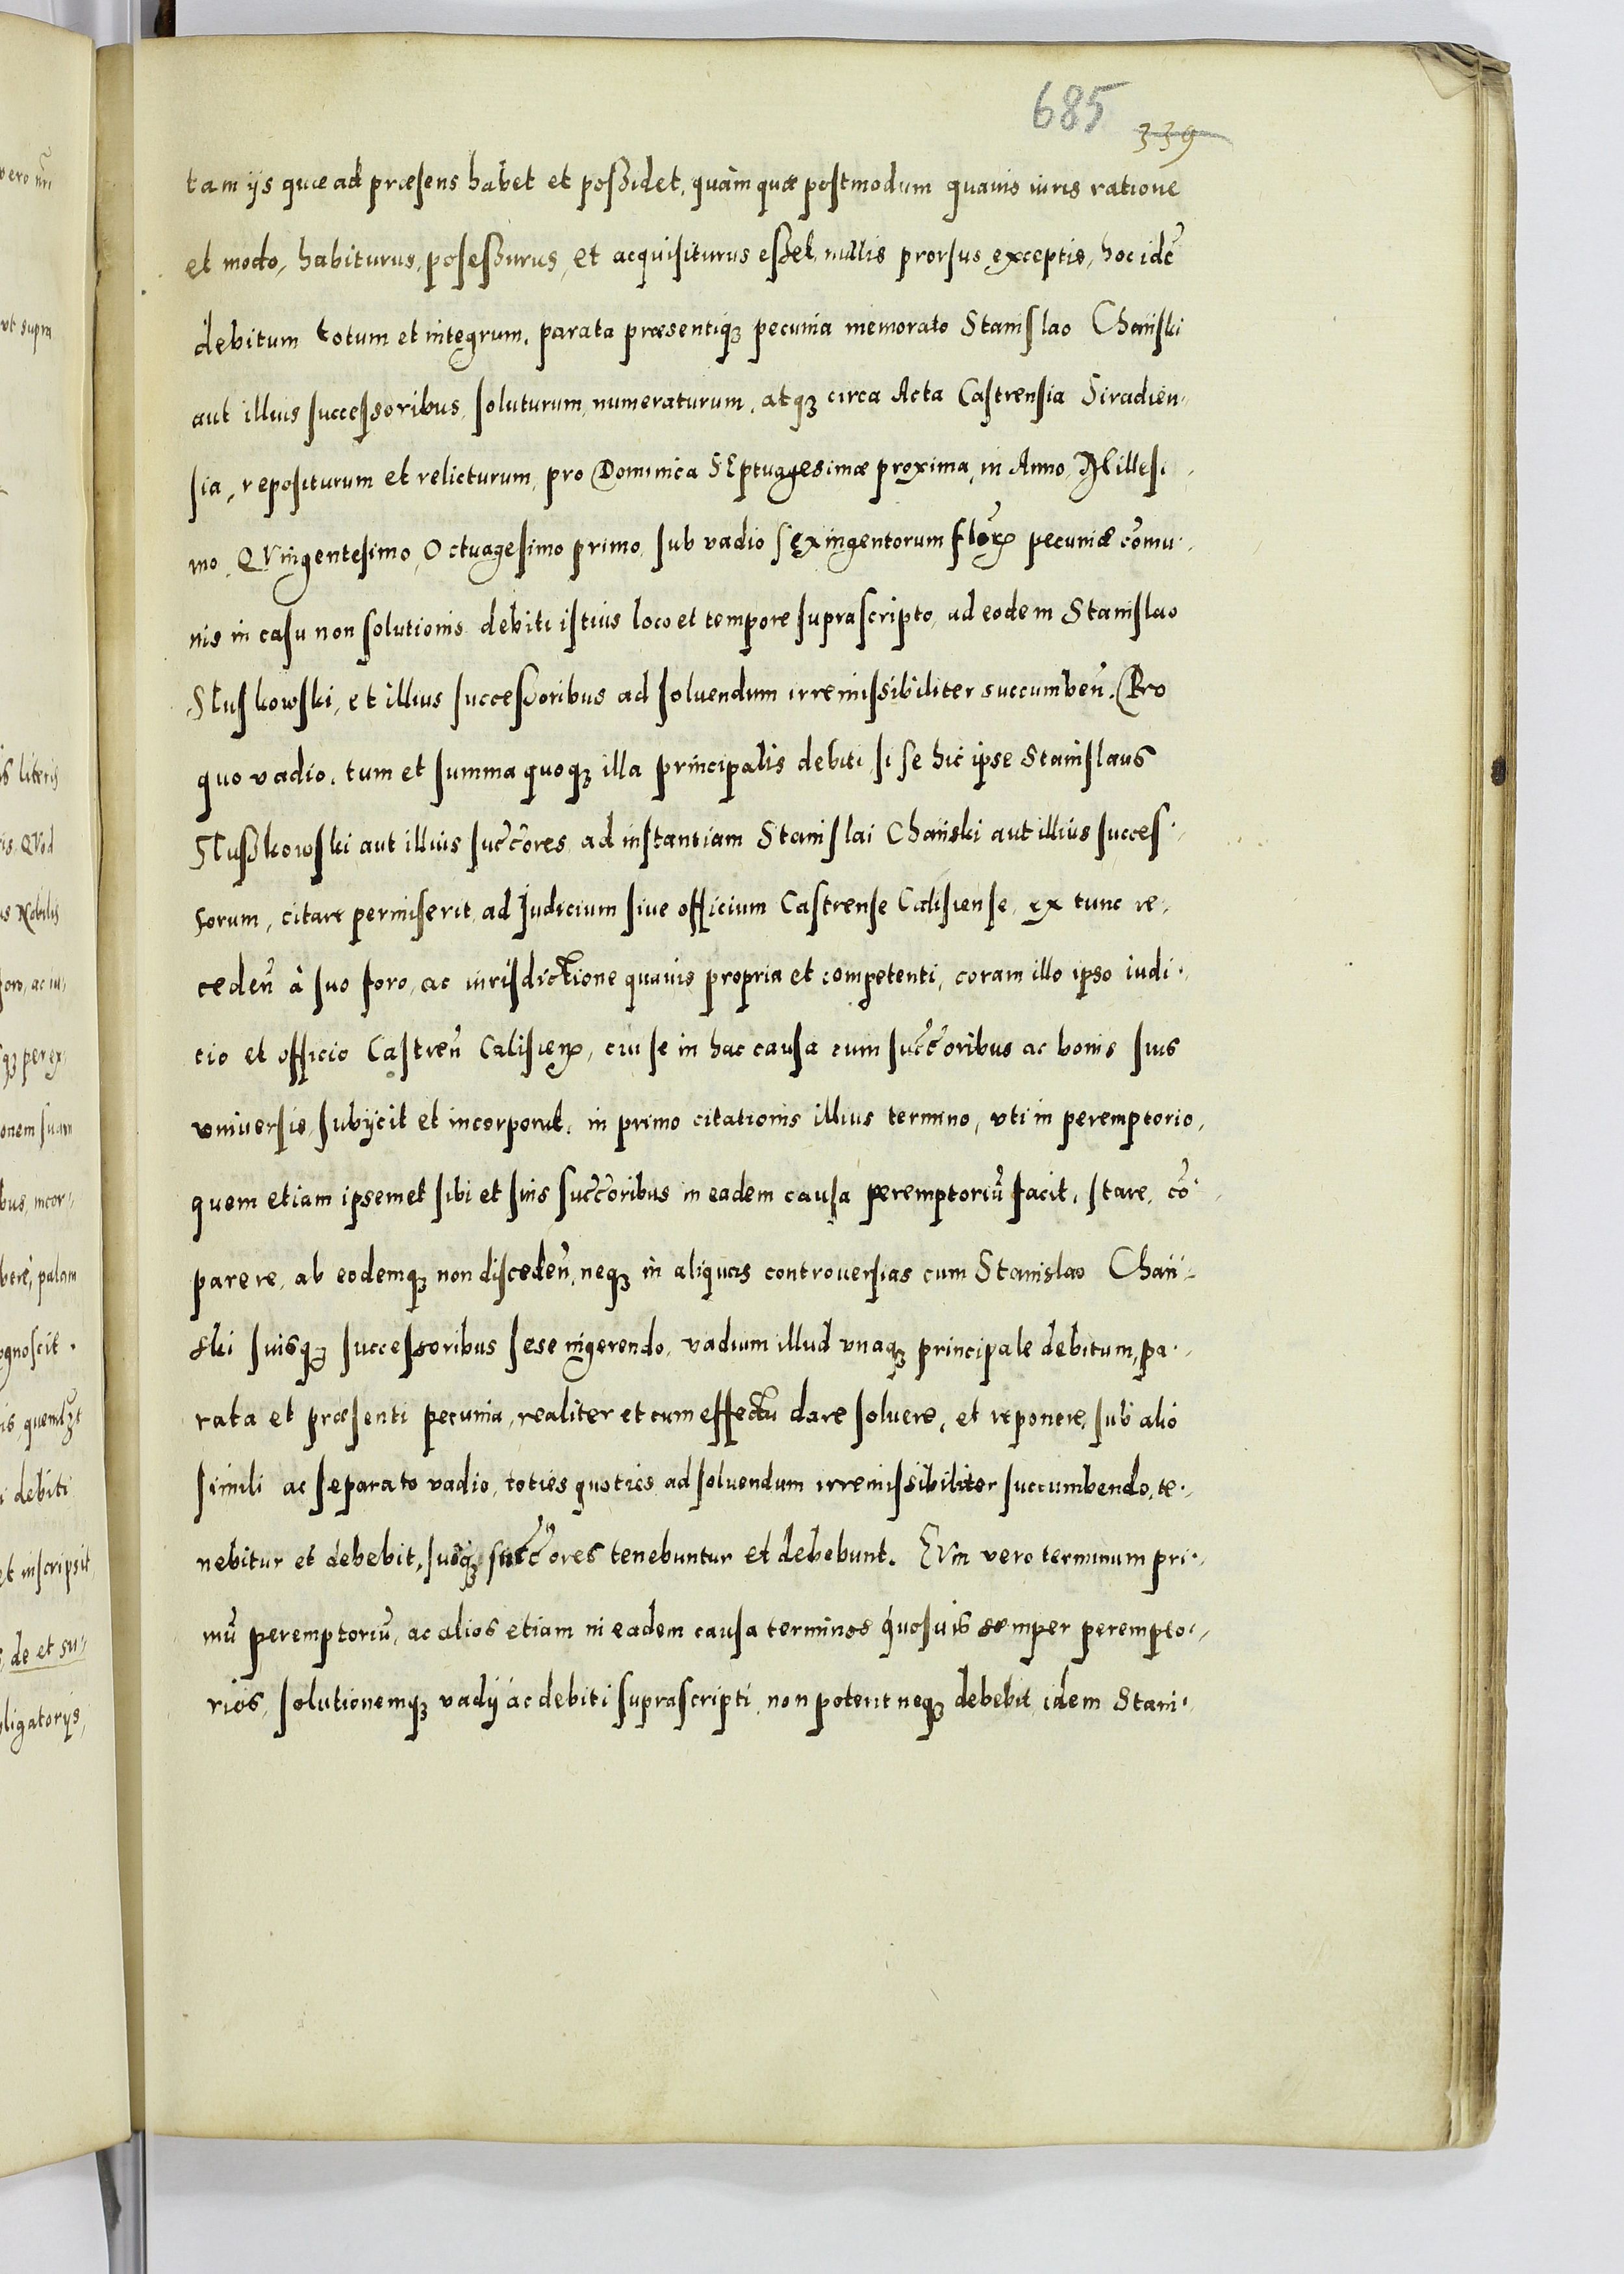 685
339
tam ijs quæ ad præsens habet et poſsidet, quàm quæ postmodum quauis iuris ratione
et modo, habiturus, poſeſsurus, et acquiſiturus eſset, nullis prorſus exceptis, hoc idē
debitum totum et integrum, parata præsentiqꝫ pecunia memorato Staniſlao Chański
aut illius ſucceſsoribus, ſoluturum, numeraturum, atqꝫ circa Acta Caſtrenſia Siradien-
ſia, repoſiturum et relicturum, pro Dominica SEptuagesimæ proxima, in Anno Milleſi-
mo QVingenteſimo, Octuageſimo primo, ſub vadio ſexingentorum floꝝ pecuniæ cōmu-
nis in caſu non ſolutionis debiti iſtius loco et tempore ſupraſcripto, ad eodem Staniſlao
Sluſkowſki, et illius ſucceſsoribus ad ſoluendum irremiſsibiliter succumbeñ. Pro
quo vadio, tum et ſumma quoqꝫ illa principalis debiti, ſi ſe hic ipse Staniſlaus
Sluſskowſki aut illius ſuccores, ad inſtantiam Staniſlai Chański aut illius ſucceſ-
sorum, citare permiſerit, ad Judicium ſiue officium Caſtrenſe Caliſienſe, ex tunc re-
cedeñ à ſuo foro, ac iuriſdictione quauis propria et competenti, coram illo ipso iudi-
cio et officio Caſtreñ Caliſieñ, cui ſe in hac cauſa cum ſuccoribus ac bonis ſuis
vniuerſis, ſubijcit et incorporat, in primo citationis illius termino, vti in peremptorio,
quem etiam ipsemet ſibi et ſuis ſuccoribus in eadem cauſa peremptoriū facit, ſtare, cō-
parere, ab eodemqꝫ non diſcedeñ, neqꝫ in aliquas controuerſias cum Stanislao Chań-
ski ſuisqꝫ ſucceſsoribus ſese ingerendo, vadium illud vnaqꝫ principale debitum, pa-
rata et præſenti pecunia, realiter et cum effectu dare ſoluere, et reponere, ſub alio
ſimili ac ſeparato vadio, toties quoties ad ſoluendum irremiſsibiliter ſuccumbendo, te-
nebitur et debebit, ſuiqꝫ ſuccores tenebuntur et debebunt. EVm vero terminum pri-
mū peremptoriū, ac alios etiam in eadem cauſa terminos quoſuis semper perempto-
rios, ſolutionemqꝫ vadij ac debiti ſupraſcripti, non poterit neqꝫ debebit idem Stani-